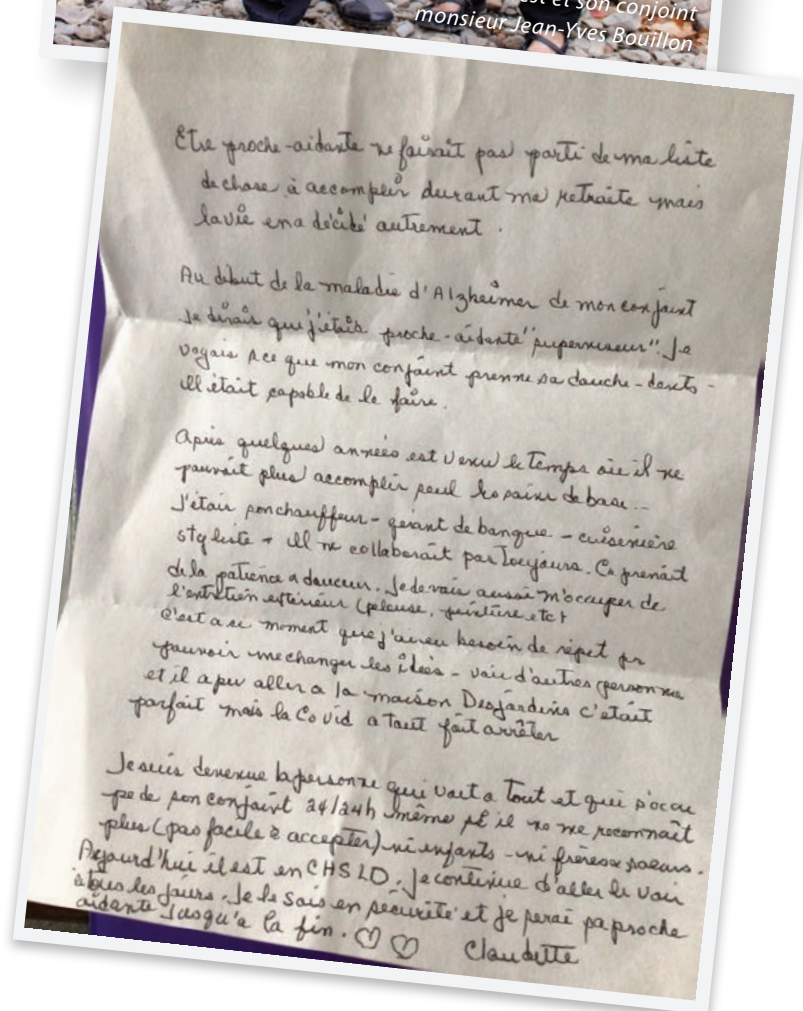 est et son conjoint
monsieur Jean-Yves Bouillon
Etre proche-aidante ne faisait pas parti de ma liste
de chose à accomplir durant ma retraite mais
la vie en a décidé autrement.
Au début de la maladie d'Alzheimer de mon conjoint
je dirais que j'étais proche-aidante "superviseur". Je
voyais à ce que mon conjoint prenne sa douche - dents -
Il était capable de le faire.
Après quelques années est venu le temps où il ne
pouvait plus accomplir seul les soins de base...
J'étais son chauffeur - gérant de banque - cuisinière
styliste - Il ne collaborait pas toujours. Ca prenait
de la patience douceur. Je devais aussi m'occuper de
l'entretien extérieur (pelouse, peinture etc)
C'est a ce moment que j'ai eu besoin de répit pr
pouvoir me changer les idées - voir d'autres personne
et il a pu aller a la maison Desjardins c'était
parfait mais la Covid a tout fait arrêter
Je suis devenue la personne qui voit a tout et qui s'occu
pe de son conjoint 24/24h même si il ne me reconnaît
plus (pas facile à accepter) ni enfants - ni frères soeurs.
Aujourd'hui il est en CHSLD. Je continue d'aller le voir
à tous les jours. Je le sais en sécurité et je serai sa proche
aidante jusqu'a la fin. ♡ ♡ Claudette